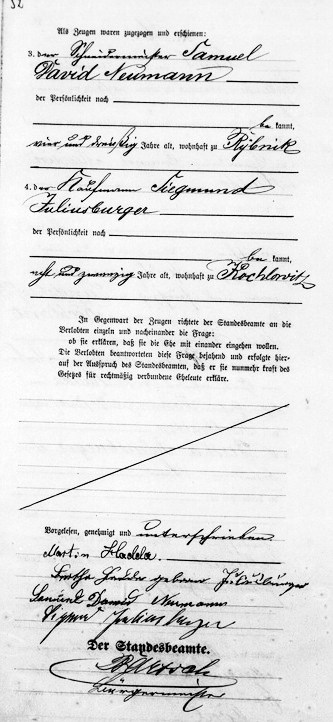 52
Als Zeugen waren zugezogen und erschienen:
3. der Schneidermeister Samuel
David Neumann
der Persönlichkeit nach
be kannt,
vier und dreißig Jahre alt, wohnhaft zu Rybnik
4. der Kaufmann Siegmund
Juliusburger
der Persönlichkeit nach
be kannt,
acht und zwanzig Jahre alt, wohnhaft zu Kochlowitz
In Gegenwart der Zeugen richtete der Standesbeamte an die
Verlobten einzeln und nacheinander die Frage:
ob sie erklären, daß sie die Ehe mit einander eingehen wollen.
Die Verlobten beantworteten diese Frage bejahend und erfolgte hier-
auf der Ausspruch des Standesbeamten, daß er sie nunmehr kraft des
Gesetzes für rechtmäßig verbundene Eheleute erkläre.
Vorgelesen, genehmigt und unterschrieben
Martin Hadda.
Hadda geborene Juliusburger
Samuel David Neumann
Juliusburger
Der Standesbeamte.
Bürgermeister